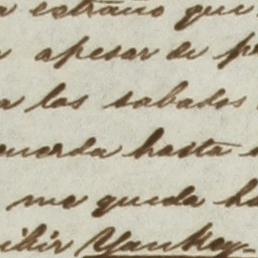 a estraño que
apesar de p
a los sabados
cuerda hasta
me queda ha
cibir Yankey-